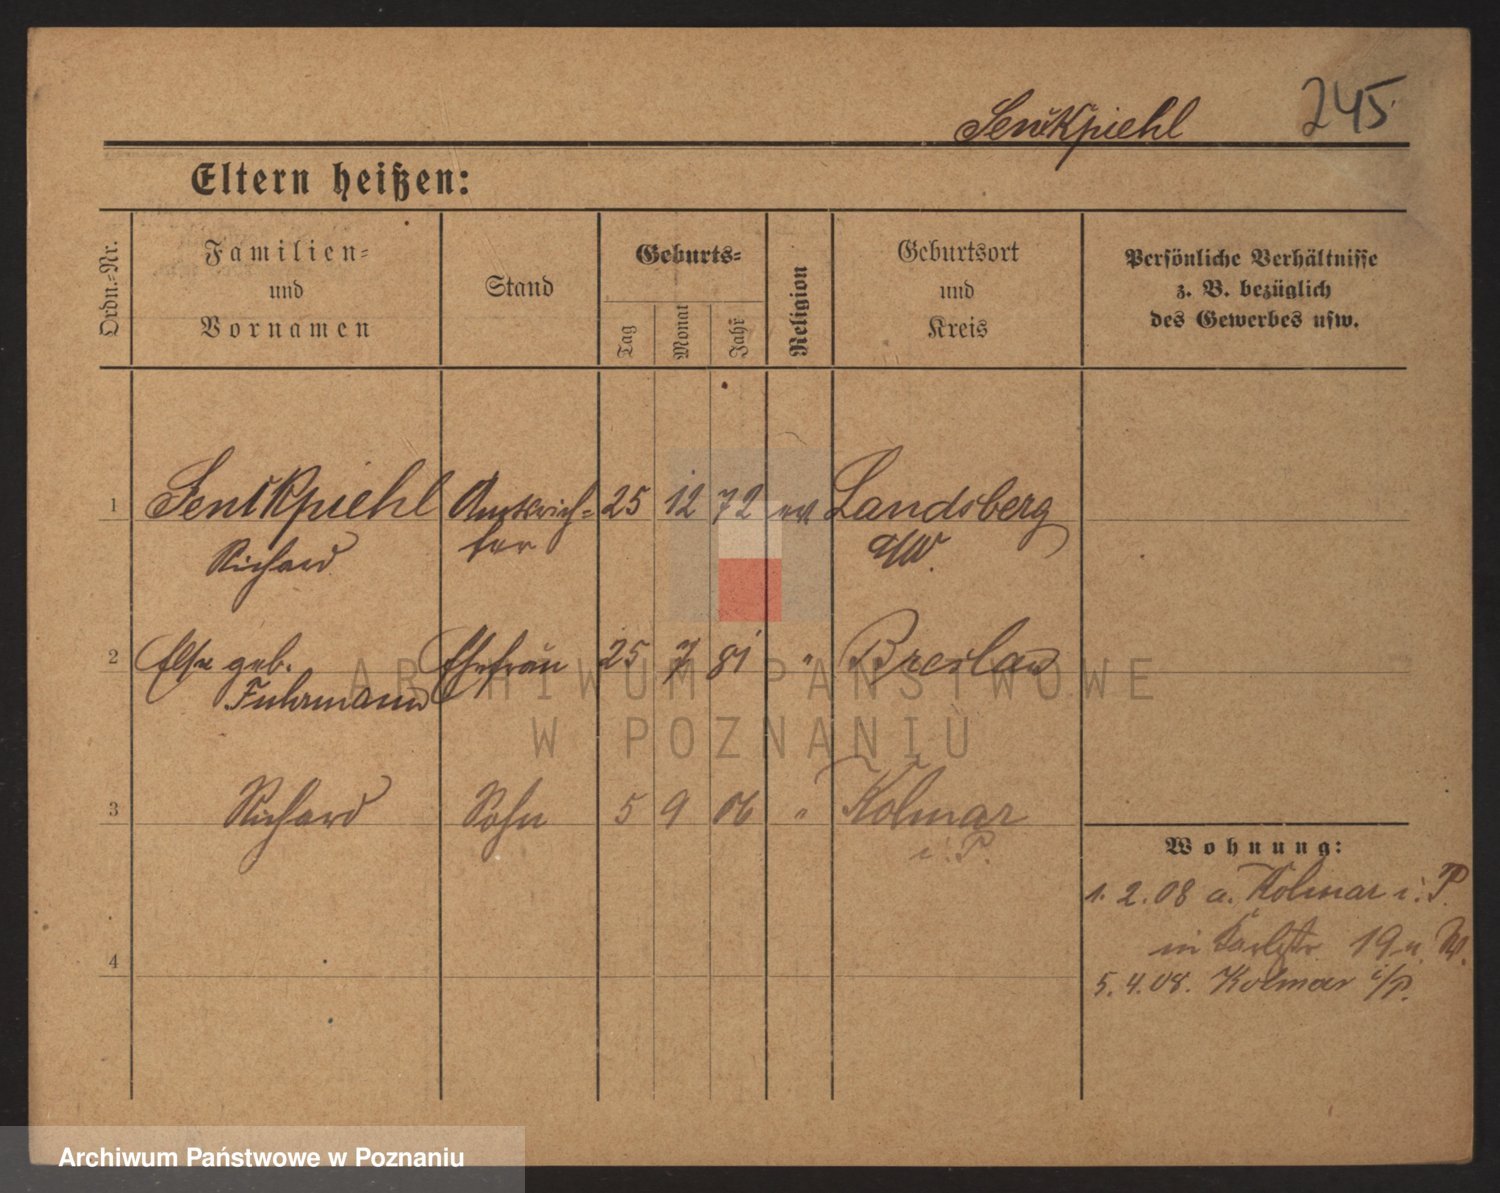 Sentkpiehl 245
Eltern heißen:
Ordn.-Nr.
Familien-
und
Vornamen
Stand
Geburts-
Tag
Monat
Jahr
Religion
Geburtsort
und
Kreis
Persönliche Verhältnisse
z. B. bezüglich
des Gewerbes usw.
1 Sentkpiehl Amtsrich- 25 12 72 ev Landsberg
Richard ter a/W.
2 Else geb. Ehefrau 25 7 81 " Breslau
Fuhrmann
3 Richard Sohn 5 9 06 " Kolmar
i. P.
Wohnung:
1. 2. 08 a. Kolmar i. P.
in Karlstr. 19
4
5. 4. 08. Kolmar i/P.
ARCHIWUM PAŃSTWOWE
W POZNANIU
Archiwum Państwowe w Poznaniu